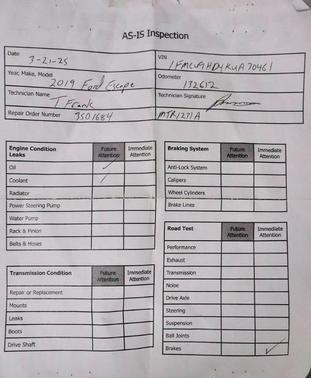 AS-IS Inspection
Date
3-21-25
VIN
1FMCU9HD4KUA70461
Year, Make, Model
2019 Ford Escape
Odometer
132612
Technician Name
T Frank
Technician Signature
Repair Order Number 3501684
MTR1271A
Engine Condition Future Immediate
Leaks Attention Attention
Oil
Coolant
Radiator
Power Steering Pump
Water Pump
Rack & Pinion
Belts & Hoses
Transmission Condition Future Immediate
Attention Attention
Repair or Replacement
Mounts
Leaks
Boots
Drive Shaft
Braking System Future Immediate
Attention Attention
Anti-Lock System
Calipers
Wheel Cylinders
Brake Lines
Road Test Future Immediate
Attention Attention
Performance
Exhaust
Transmission
Noise
Drive Axle
Steering
Suspension
Ball Joints
Brakes